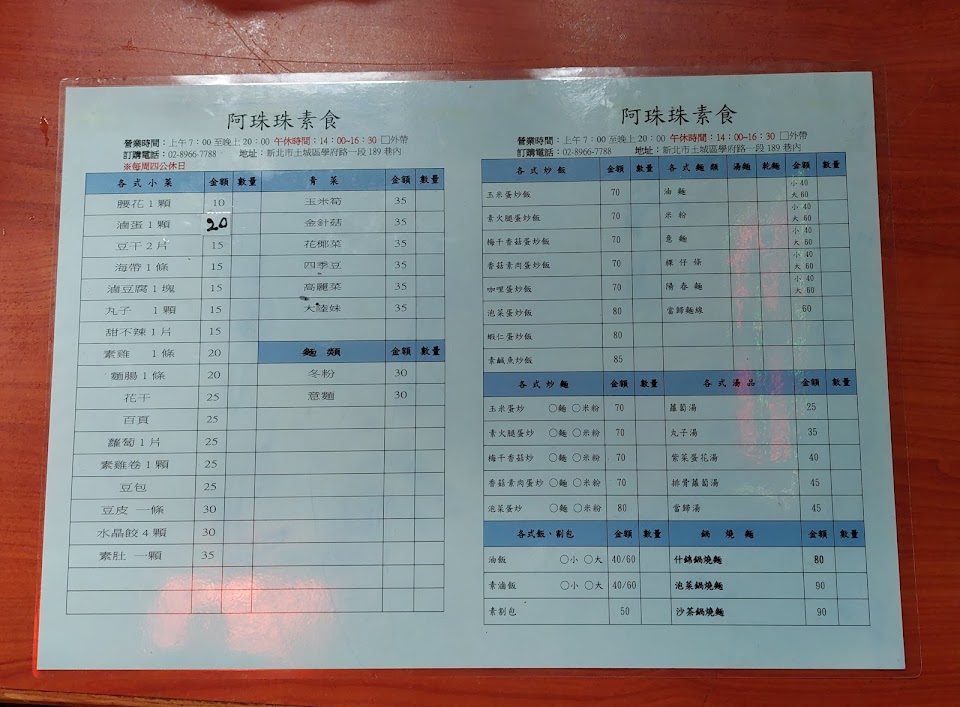 阿珠珠素食
營業時間：上午7：00至晚上20：00 午休時間：14：00~16：30 □外帶
訂購電話：02-8966-7788 地址：新北市土城區學府路一段189巷內
※每周四公休日
各式小菜 金額 數量 青菜 金額 數量
腰花1顆 10 玉米筍 35
滷蛋1顆 20 金針菇 35
豆干2片 15 花椰菜 35
海帶1條 15 四季豆 35
滷豆腐1塊 15 高麗菜 35
丸子 1顆 15 大陸妹 35
甜不辣1片 15
素雞 1條 20 麵類 金額 數量
麵腸1條 20 冬粉 30
花干 25 意麵 30
百頁 25
蘿蔔1片 25
素雞卷1顆 25
豆包 25
豆皮 一條 30
水晶餃4顆 30
素肚 一顆 35
阿珠珠素食
營業時間：上午7：00至晚上20：00 午休時間：14：00~16：30 □外帶
訂購電話：02-8966-7788 地址：新北市土城區學府路一段189巷內
各式炒飯 金額 數量 各式麵類 湯麵 乾麵 金額 數量
玉米蛋炒飯 70 油麵 小40 大60
素火腿蛋炒飯 70 米粉 小40 大60
梅干香菇蛋炒飯 70 意麵 小40 大60
香菇素肉蛋炒飯 70 粿仔條 小40 大60
咖哩蛋炒飯 70 陽春麵 小40 大60
泡菜蛋炒飯 80 當歸麵線 60
蝦仁蛋炒飯 80
素鹹魚炒飯 85
各式炒麵 金額 數量 各式湯品 金額 數量
玉米蛋炒 ○麵 ○米粉 70 蘿蔔湯 25
素火腿蛋炒 ○麵 ○米粉 70 丸子湯 35
梅干香菇炒 ○麵 ○米粉 70 紫菜蛋花湯 40
香菇素肉蛋炒 ○麵 ○米粉 70 排骨蘿蔔湯 45
泡菜蛋炒 ○麵 ○米粉 80 當歸湯 45
各式飯、割包 金額 數量 鍋燒麵 金額 數量
油飯 ○小 ○大 40/60 什錦鍋燒麵 80
素滷飯 ○小 ○大 40/60 泡菜鍋燒麵 90
素割包 50 沙茶鍋燒麵 90